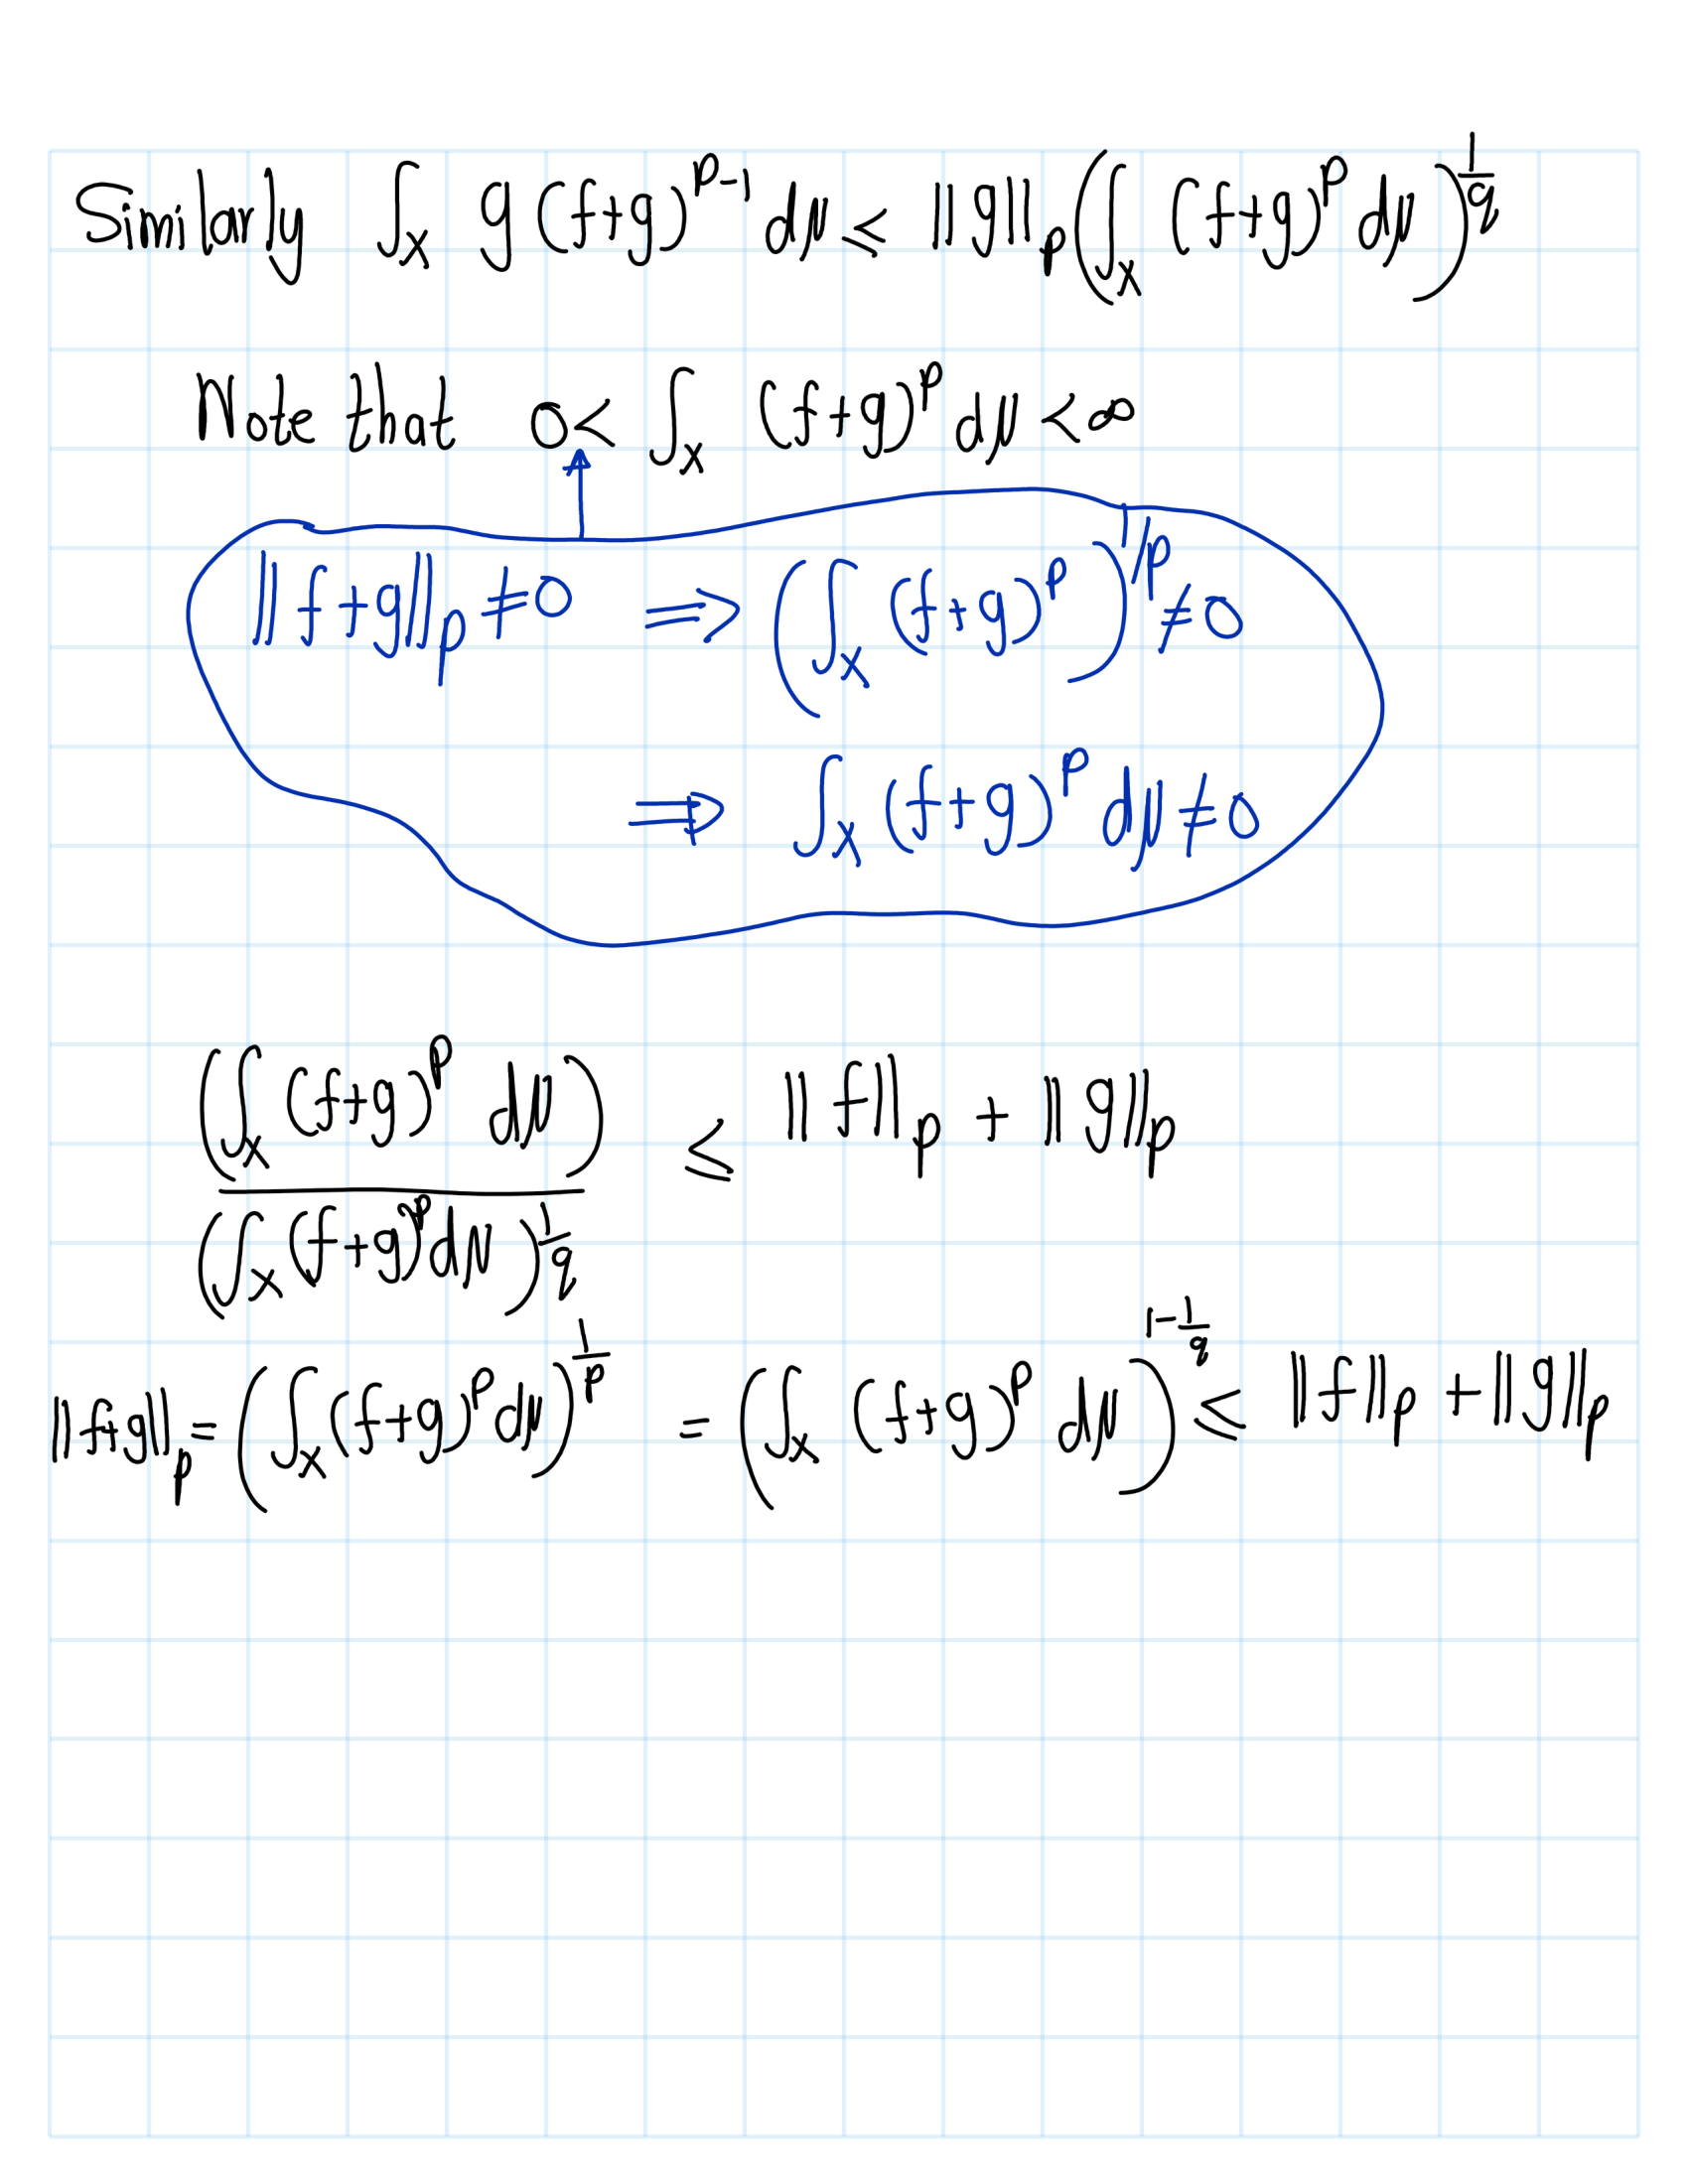 Similarly ∫_X g(f+g)^{p-1} dμ ≤ ||g||_p (∫_X (f+g)^p dμ)^{1/q}
Note that 0 < ∫_X (f+g)^p dμ < ∞
||f+g||_p ≠ 0 ⇒ (∫_X (f+g)^p)^{1/p} ≠ 0
⇒ ∫_X (f+g)^p dμ ≠ 0
(∫_X (f+g)^p dμ) / (∫_X (f+g)^p dμ)^{1/q} ≤ ||f||_p + ||g||_p
||f+g||_p = (∫_X (f+g)^p dμ)^{1/p} = (∫_X (f+g)^p dμ)^{1-1/q} ≤ ||f||_p + ||g||_p